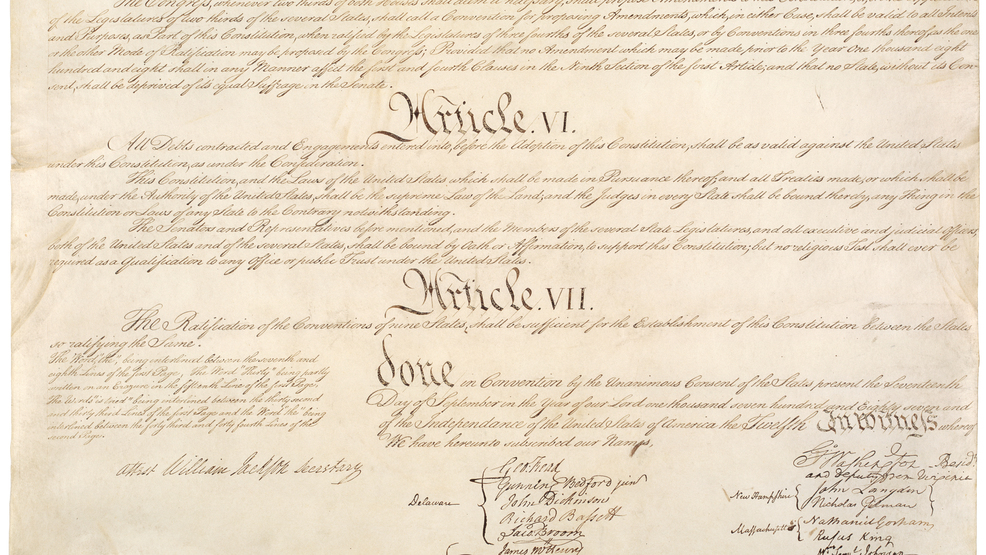 The Congress, whenever two thirds of both Houses shall deem it necessary, shall propose Amendments to this Constitution, or, on the Application
of the Legislatures of two thirds of the several States, shall call a Convention for proposing Amendments, which, in either Case, shall be valid to all Intents
and Purposes, as Part of this Constitution, when ratified by the Legislatures of three fourths of the several States, or by Conventions in three fourths thereof, as the one
or the other Mode of Ratification may be proposed by the Congress; Provided that no Amendment which may be made prior to the Year One thousand eight
hundred and eight shall in any Manner affect the first and fourth Clauses in the Ninth Section of the first Article; and that no State, without its Con-
sent, shall be deprived of its equal Suffrage in the Senate.
Article. VI.
All Debts contracted and Engagements entered into, before the Adoption of this Constitution, shall be as valid against the United States
under this Constitution, as under the Confederation.
This Constitution, and the Laws of the United States which shall be made in Pursuance thereof; and all Treaties made, or which shall be
made, under the Authority of the United States, shall be the supreme Law of the Land; and the Judges in every State shall be bound thereby, any Thing in the
Constitution or Laws of any State to the Contrary notwithstanding.
The Senators and Representatives before mentioned, and the Members of the several State Legislatures, and all executive and judicial Officers,
both of the United States and of the several States, shall be bound by Oath or Affirmation, to support this Constitution; but no religious Test shall ever be
required as a Qualification to any Office or public Trust under the United States.
Article. VII.
The Ratification of the Conventions of nine States, shall be sufficient for the Establishment of this Constitution between the States
so ratifying the Same.
The Word, "the," being interlined between the seventh and
eighth Lines of the first Page, The Word "Thirty" being partly
written on an Erazure in the fifteenth Line of the first Page,
The Words "is tried" being interlined between the thirty second
and thirty third Lines of the first Page and the Word "the" being
interlined between the forty third and forty fourth Lines of the
second Page.
done in Convention by the Unanimous Consent of the States present the Seventeenth
Day of September in the Year of our Lord one thousand seven hundred and Eighty seven and
of the Independance of the United States of America the Twelfth In Witness whereof
We have hereunto subscribed our Names,
Attest William Jackson Secretary
Go: Washington Presidt.
and deputy from Virginia
Delaware
Geo: Read
Gunning Bedford jun
John Dickinson
Richard Bassett
Jaco: Broom
James McHenry
New Hampshire
John Langdon
Nicholas Gilman
Massachusetts
Nathaniel Gorham
Rufus King
Wm. Saml. Johnson